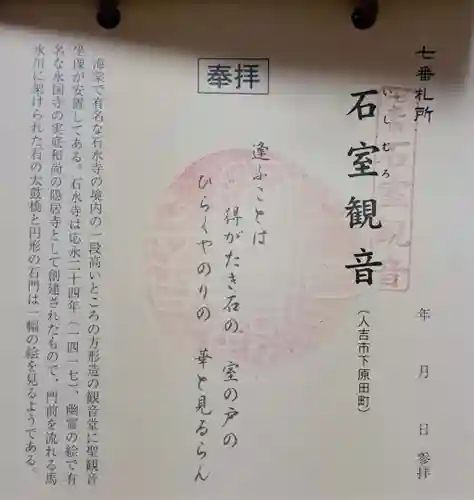 七番札所
石室観音
いしむろ
(人吉市下原田町)
年 月 日 参拝
奉拝
逢ふことは
得がたき石の 室の戸の
ひらくやのりの 華と見るらん
海棠で有名な石水寺の境内の一段高いところの方形造の観音堂に聖観音
坐像が安置してある。石水寺は応永二十四年(一四一七)、幽霊の絵で有
名な永国寺の実底和尚の隠居寺として創建されたもので、門前を流れる馬
氷川に架けられた石の太鼓橋と円形の石門は一幅の絵を見るようである。